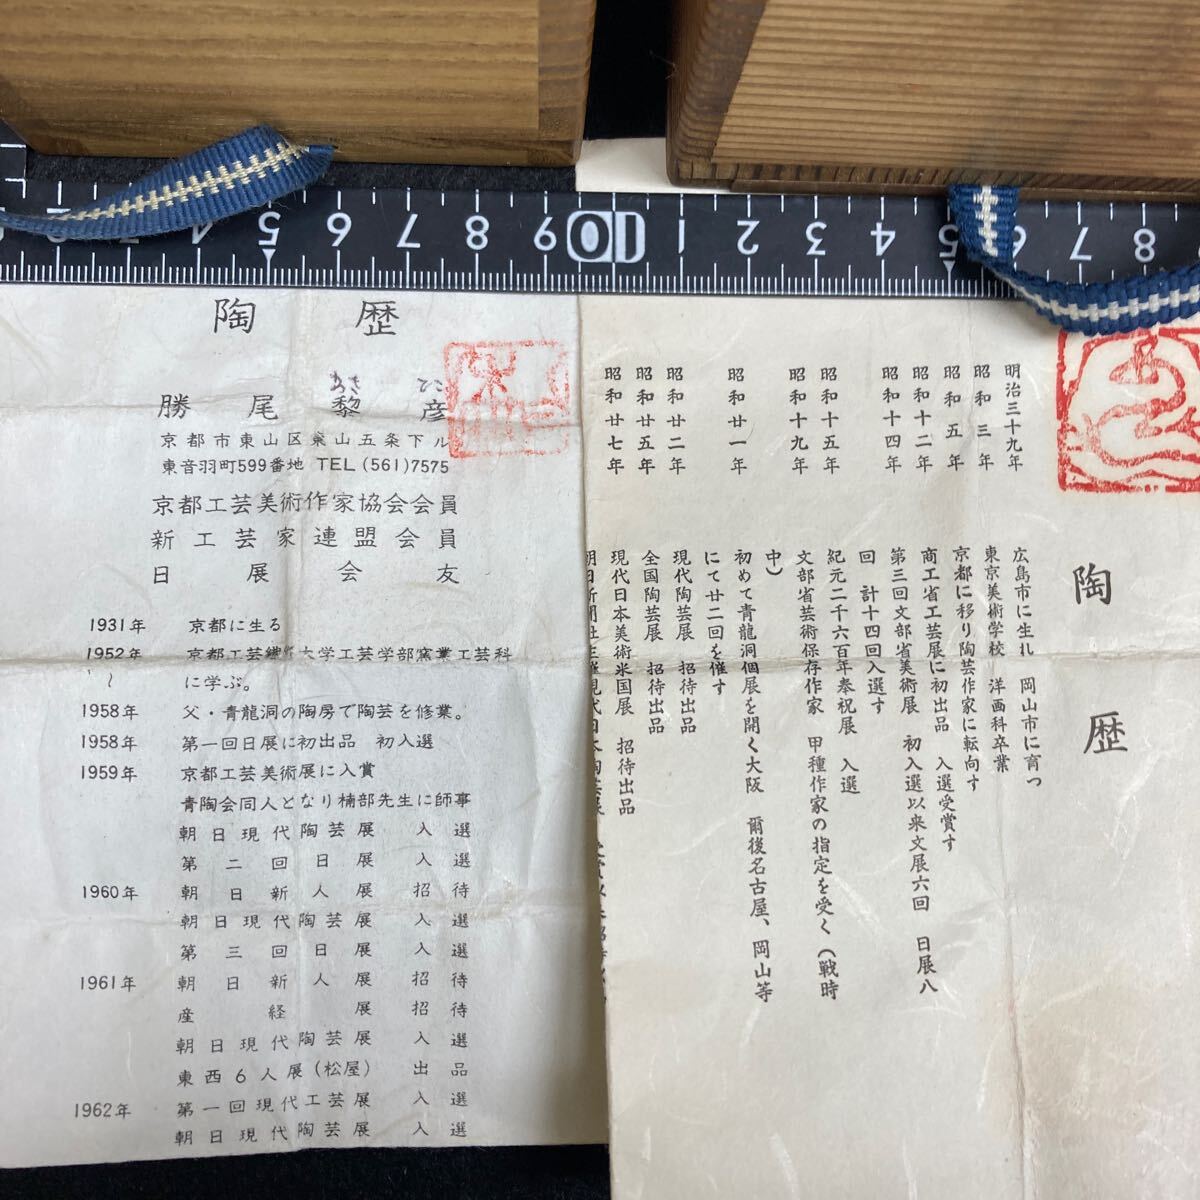 陶歴
あき ひこ
勝尾黎彦
京都市東山区東山五条下ル
東音羽町599番地 TEL (561)7575
京都工芸美術作家協会会員
新工芸家連盟会員
日展会友
1931年 京都に生る
1952年 京都工芸繊維大学工芸学部窯業工芸科
〜 に学ぶ。
1958年 父・青龍洞の陶房で陶芸を修業。
1958年 第一回日展に初出品 初入選
1959年 京都工芸美術展に入賞
青陶会同人となり楠部先生に師事
朝日現代陶芸展 入選
第二回日展 入選
1960年 朝日新人展 招待
朝日現代陶芸展 入選
第三回日展 入選
1961年 朝日新人展 招待
産経展 招待
朝日現代陶芸展 入選
東西6人展(松屋) 出品
1962年 第一回現代工芸展 入選
朝日現代陶芸展 入選
陶歴
明治三十九年 広島市に生れ 岡山市に育つ
昭和三年 東京美術学校 洋画科卒業
昭和五年 京都に移り陶芸作家に転向す
昭和十二年 商工省工芸展に初出品 入選受賞す
昭和十四年 第三回文部省美術展 初入選以来文展六回 日展八
回 計十四回入選す
昭和十五年 紀元二千六百年奉祝展 入選
昭和十九年 文部省芸術保存作家 甲種作家の指定を受く(戦時
中)
昭和廿一年 初めて青龍洞個展を開く大阪 爾後名古屋、岡山等
にて廿二回を催す
昭和廿二年 現代陶芸展 招待出品
昭和廿五年 全国陶芸展 招待出品
昭和廿七年 現代日本美術米国展 招待出品
朝日新聞社主催現代日本陶芸展
2 3 4 5 6 7 8 9 10 1 2 3 4 5 6 7 8